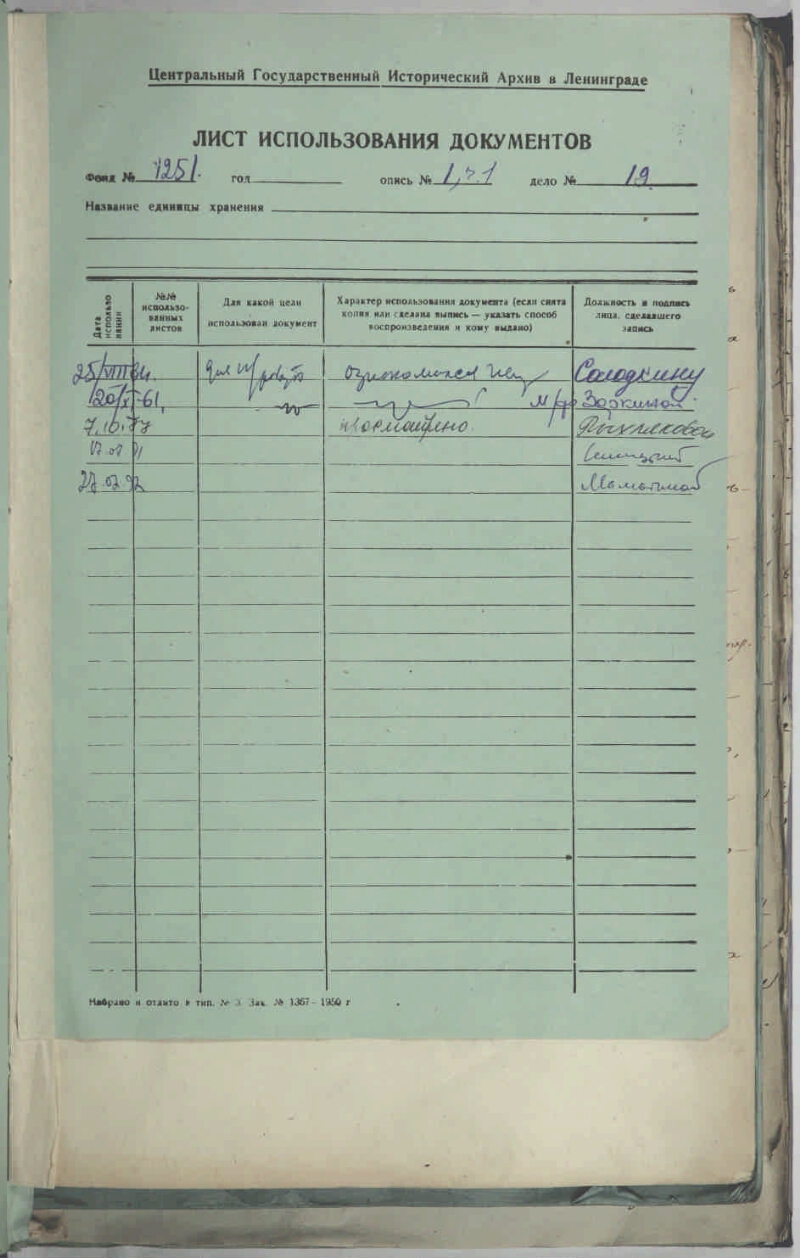 Центральный Государственный Исторический Архив в Ленинграде
ЛИСТ ИСПОЛЬЗОВАНИЯ ДОКУМЕНТОВ
Фонд № 1251. год опись № 1, т. 1 дело № 19
Название единицы хранения
Дата использования
№№ использованных листов
Для какой цели использован документ
Характер использования документа (если снята копия или сделана выпись — указать способ воспроизведения и кому выдано)
Должность и подпись лица, сделавшего запись
25/VIII для н/работ
20/X-61, Зоркиной
7.10.77
17.01
27.02.92
Набрано и отлито в тип. № 3 Зак. № 1367 - 1950 г